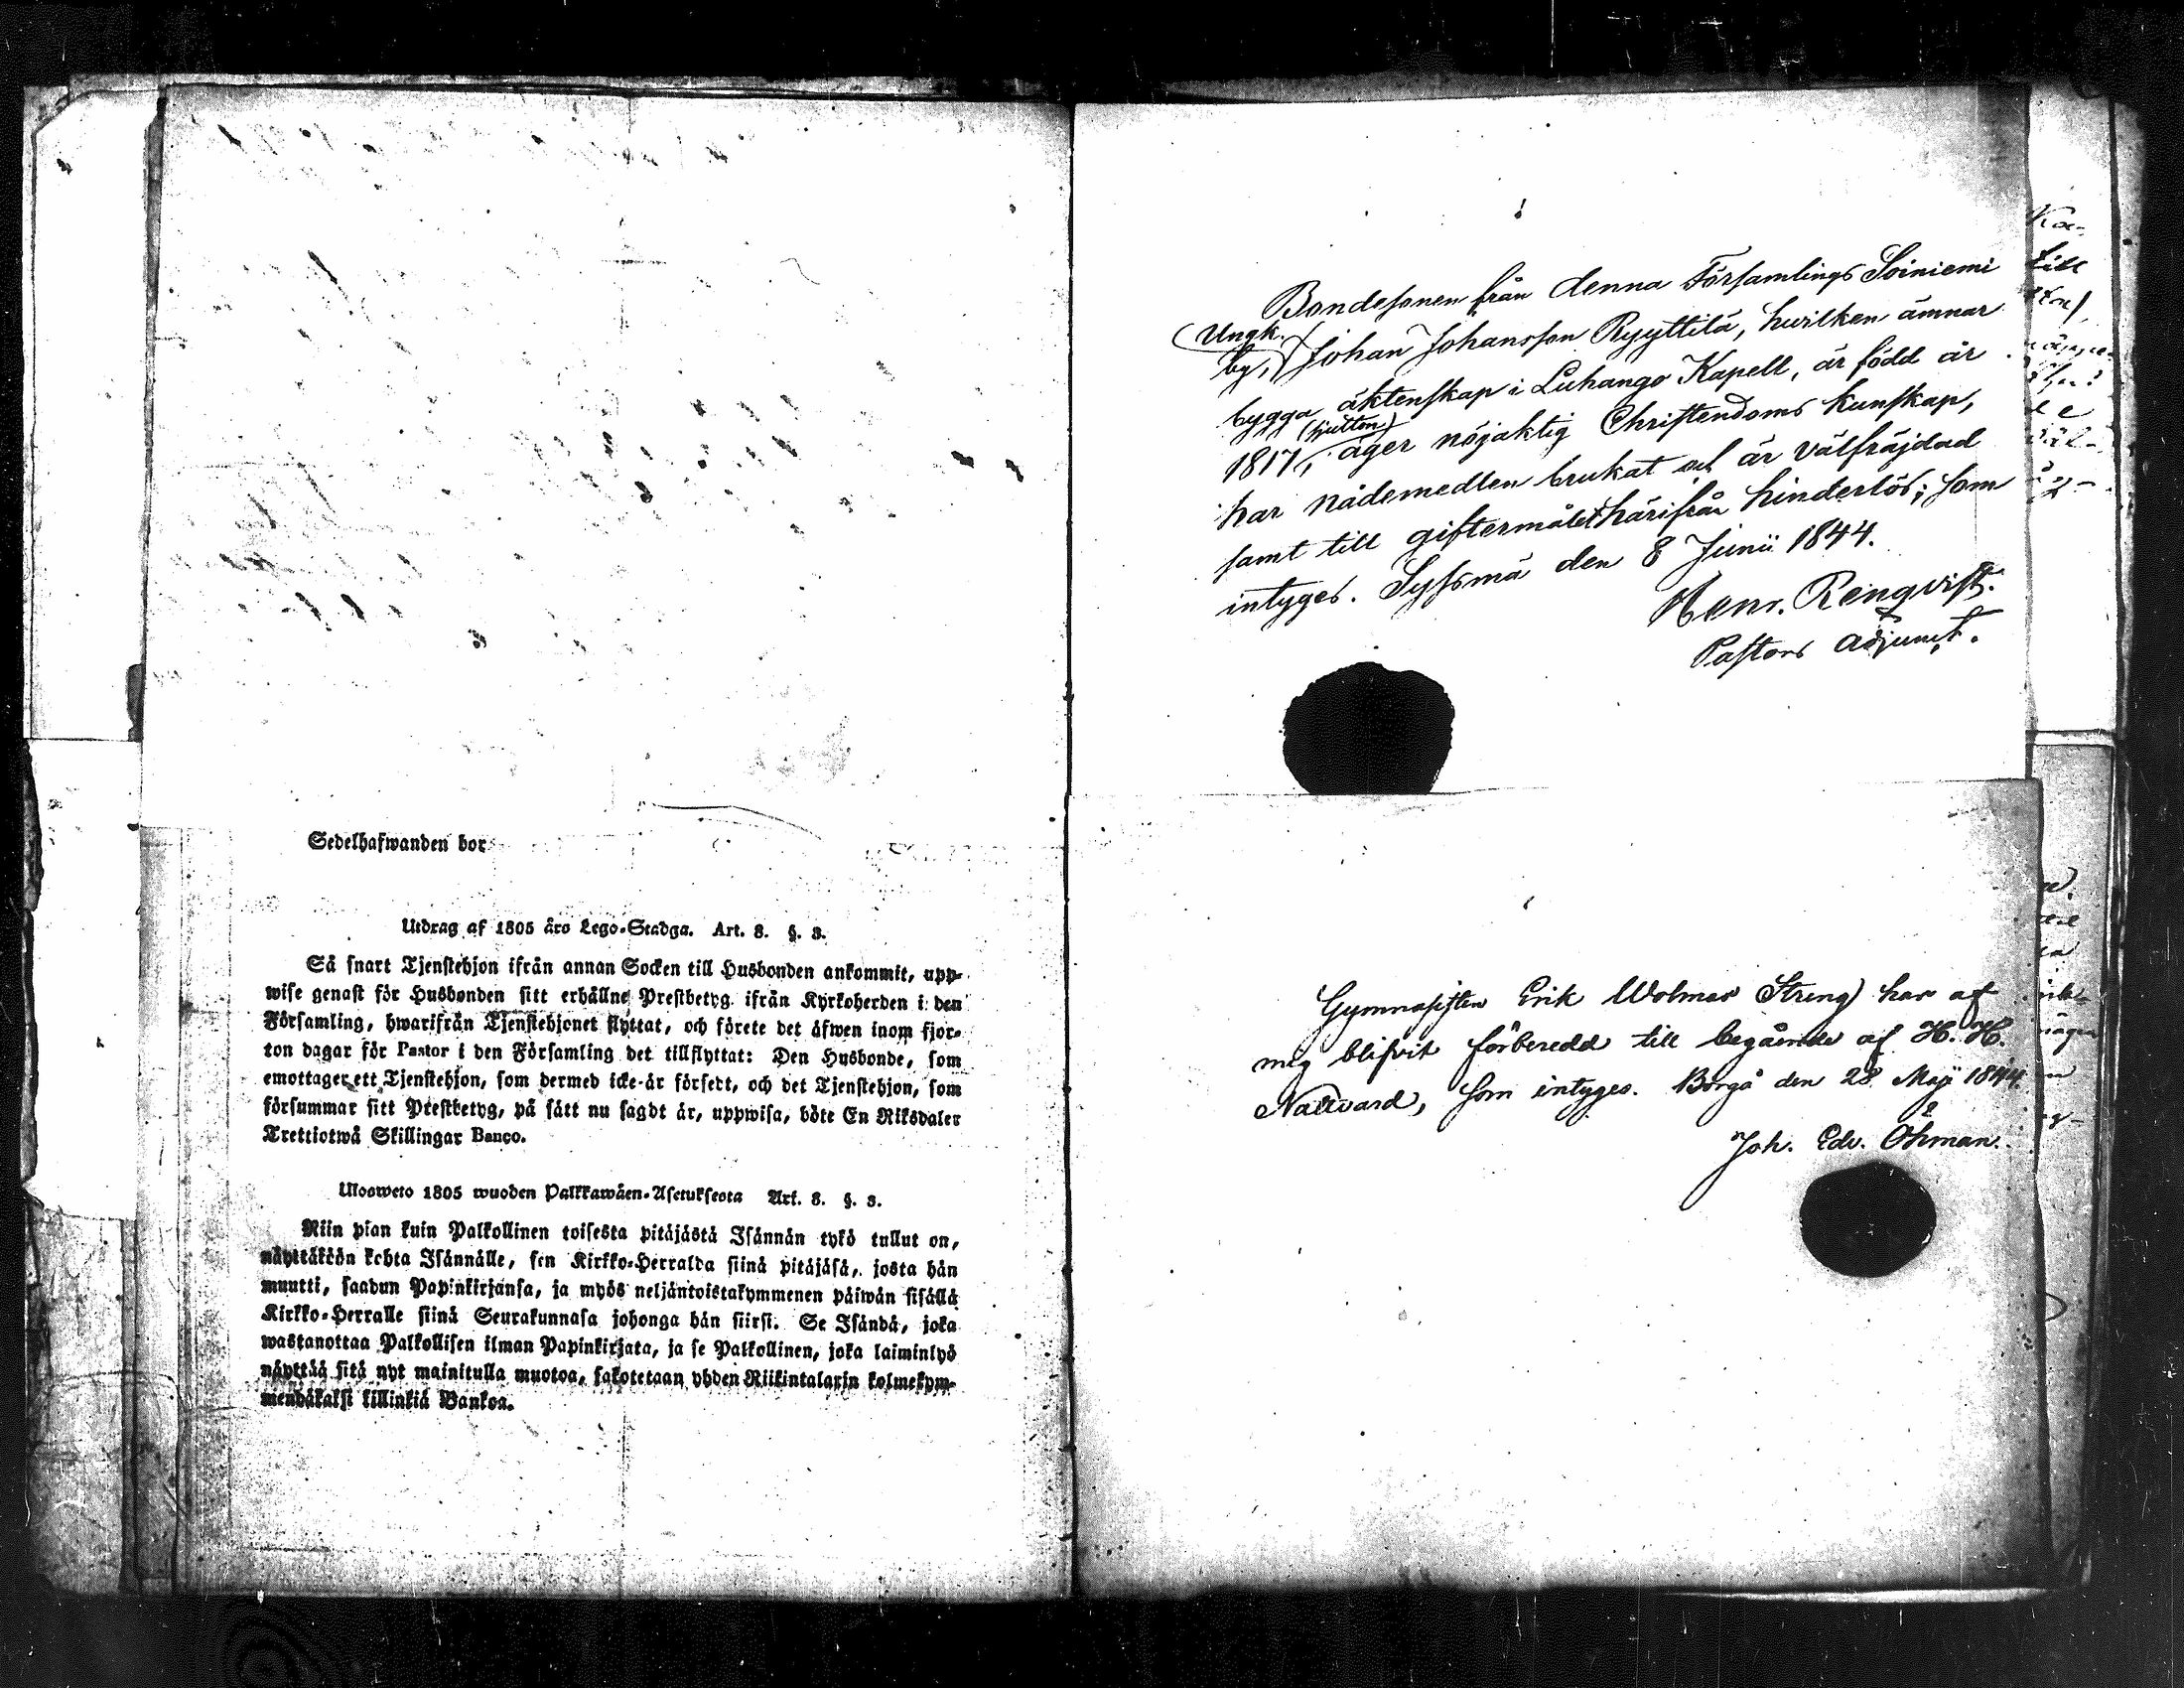 Sedelhafwanden bor
Utdrag af 1805 års Lego-Stadga. Art. 8. §. 3.
Så snart Tjenstehjon ifrån annan Socken till Husbonden ankommit, upp-
wise genast för Husbonden sitt erhållne Prestbetyg ifrån Kyrkoherden i den
Församling, hwarifrån Tjenstehjonet flyttat, och förete det äfwen inom fjor-
ton dagar för Pastor i den Församling det tillflyttat: Den Husbonde, som
emottager ett Tjenstehjon, som dermed icke är försedt, och det Tjenstehjon, som
försummar sitt Prestbetyg, på sätt nu sagdt är, uppwisa, böte En Riksdaler
Trettiotwå Skillingar Banco.
Ulosweto 1805 wuoden Palkkawäen-Asetuksesta Art. 8. §. 3.
Niin pian kuin Palkollinen toisesta pitäjästä Isännän tykö tullut on,
näyttäköön kohta Isännälle, sen Kirkko-Herralda siinä pitäjäsä, josta hän
muutti, saadun Papinkirjansa, ja myös neljäntoistakymmenen päiwän sisällä
Kirkko-Herralle siinä Seurakunnasa johonga hän siirsi. Se Isändä, joka
wastanottaa Palkollisen ilman Papinkirjata, ja se Palkollinen, joka laiminlyö
näyttää sitä nyt mainitulla muotoa, sakotetaan yhden Riikintalarin kolmekym-
mendäkaksi killinkiä Bankoa.
Bondesonen från denna Församlings Soiniemi
(Ungk.)
by, Johan Johansson Ryyttilä, hwilken ämnar
bygga äktenskap i Luhango Kapell, är född år
(sjutton)
1817, äger nöjaktig Christendoms kunskap,
har nådemedlen brukat och är välfräjdad
samt till giftermålet härifrån hinderlös; som
intyges. Syssmä den 8 Junii 1844.
Henr. Renqvist.
Pastors adjunct.
Gymnasisten Erik Wolmar Streng har af
mig blifvit förberedd till begående af H. H.
Nattvard, som intyges. Borgå den 28 Maji 1844.
Joh. Edv. Öhman.